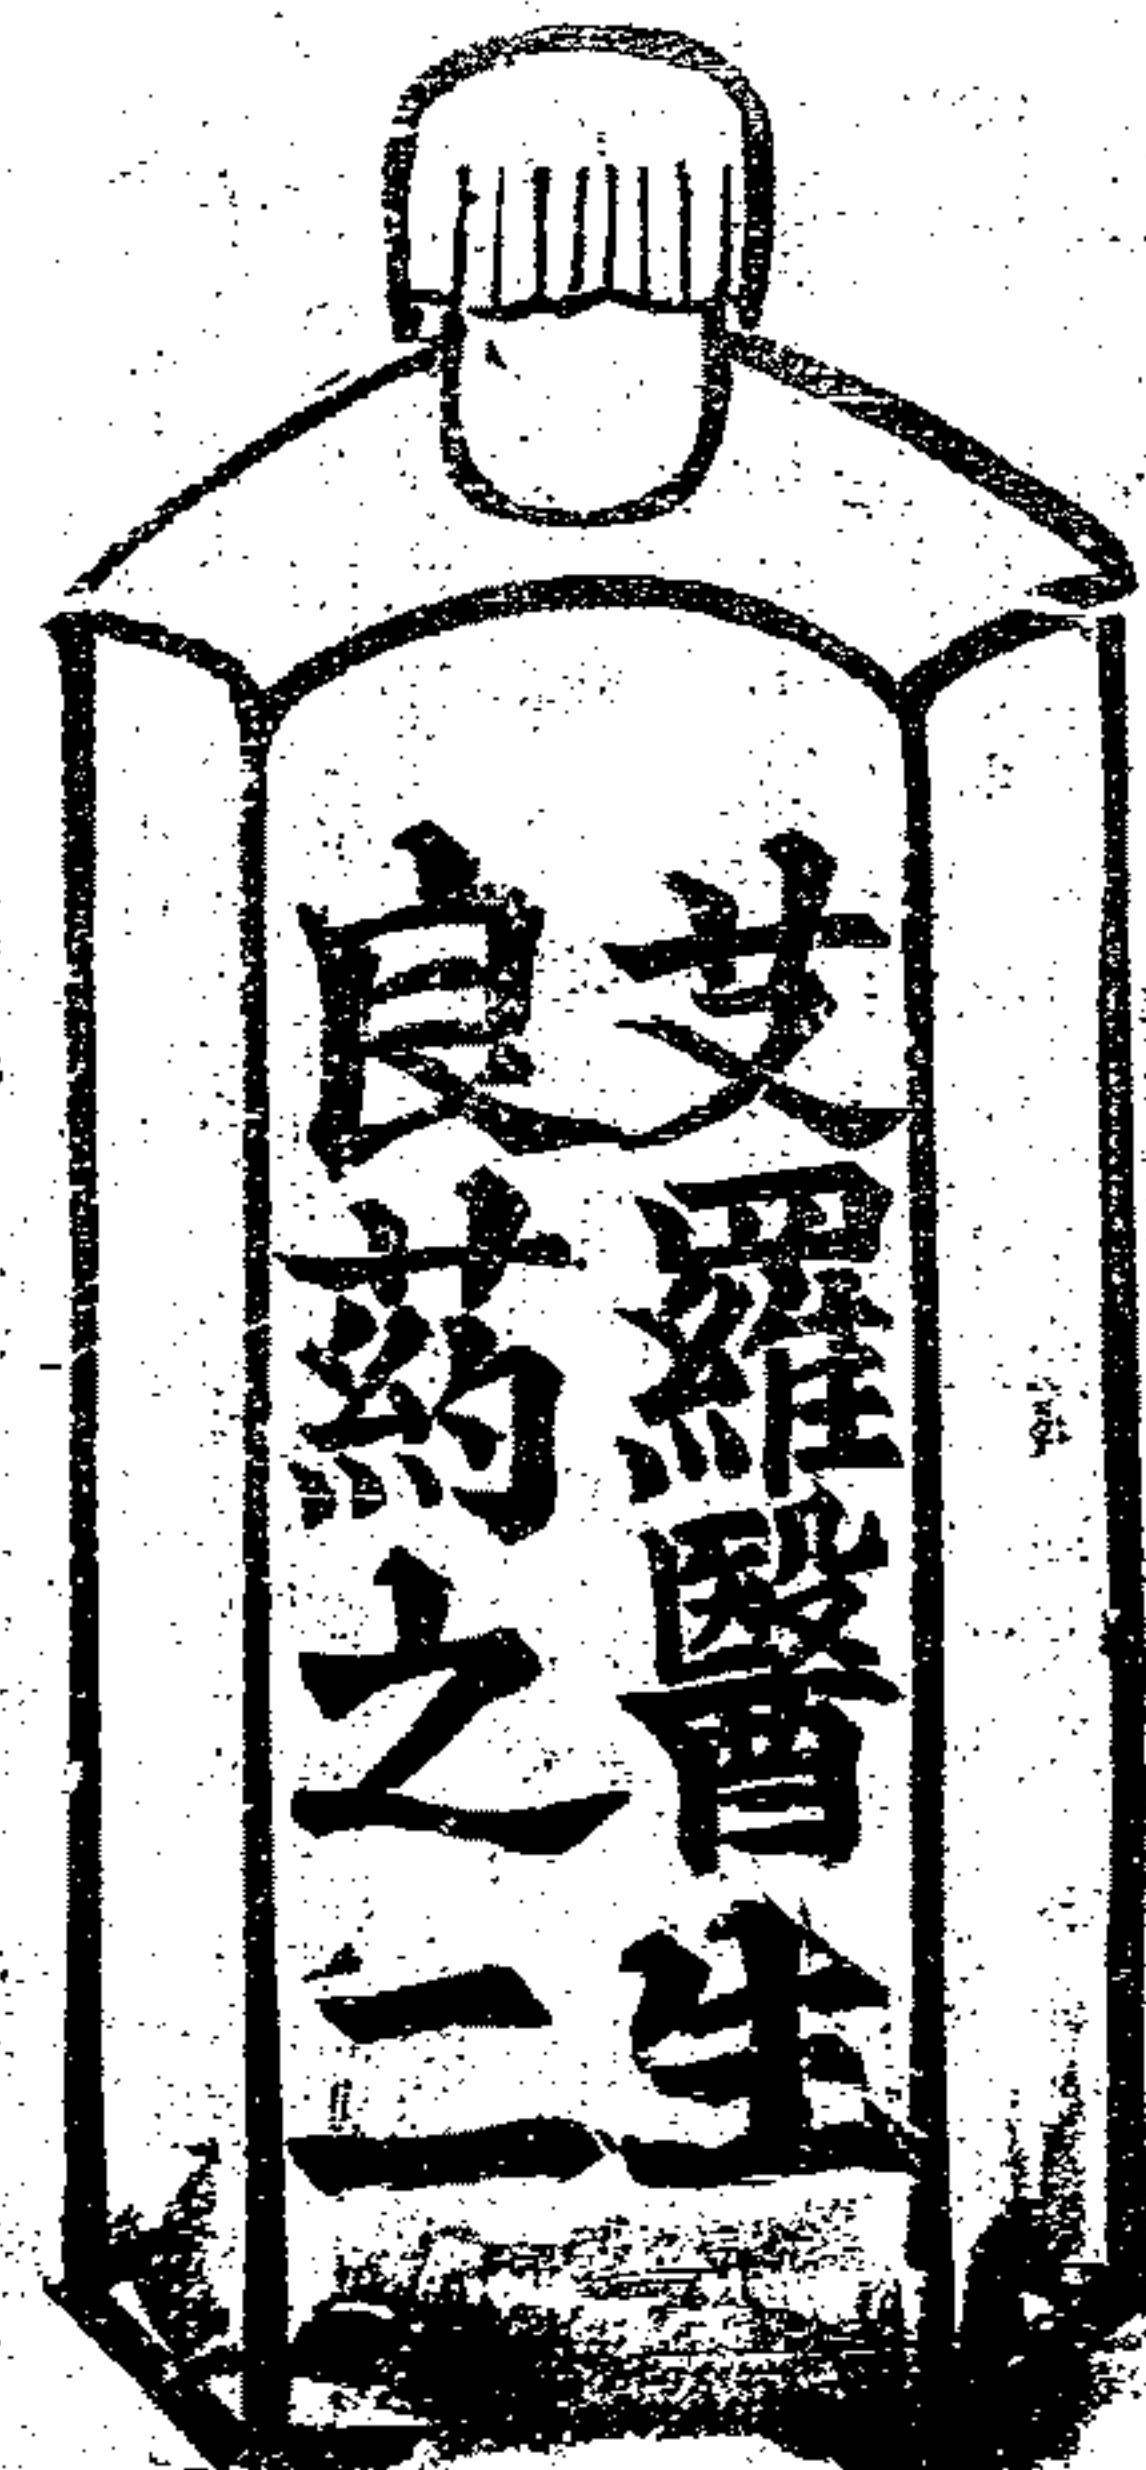 艾羅醫生
良葯之二